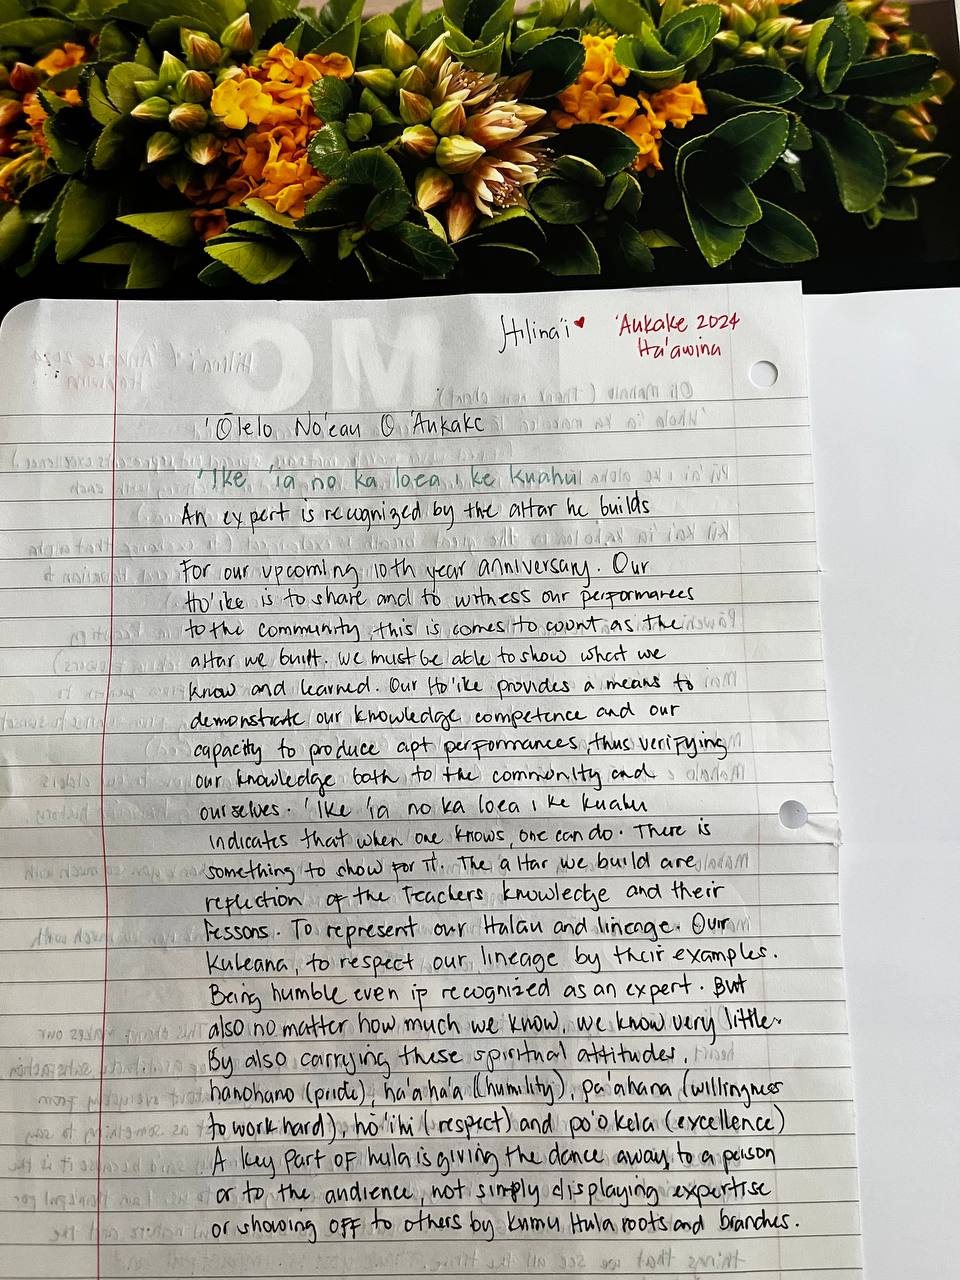 Hilina'i ♥ 'Aukake 2024
Ha'awina
'Ōlelo No'eau O 'Aukake
'Ike 'ia no ka loea i ke kuahu
An expert is recognized by the altar he builds
For our upcoming 10th year anniversary. Our
Ho'ike is to share and to witness our performances
to the community, this is comes to count as the
altar we built. We must be able to show what we
know and learned. Our Ho'ike provides a means to
demonstrate our knowledge competence and our
capacity to produce apt performances, thus verifying
our knowledge both to the community and
ourselves. 'Ike 'ia no ka loea i ke kuahu
indicates that when one knows, one can do. There is
something to show for it. The altar we build are
reflection of the Teachers knowledge and their
Lessons. To represent our Halau and lineage. Our
Kuleana, to respect our lineage by their examples.
Being humble even if recognized as an expert. But
also no matter how much we know, we know very little.
By also carrying these spiritual attitudes,
hanohano (pride), ha'aha'a (humility), pa'ahana (willingness
to work hard), ho'ihi (respect) and po'okela (excellence)
A key part of hula is giving the dance away, to a person
or to the audience, not simply displaying expertise
or showing off to others by Kumu Hula roots and branches.